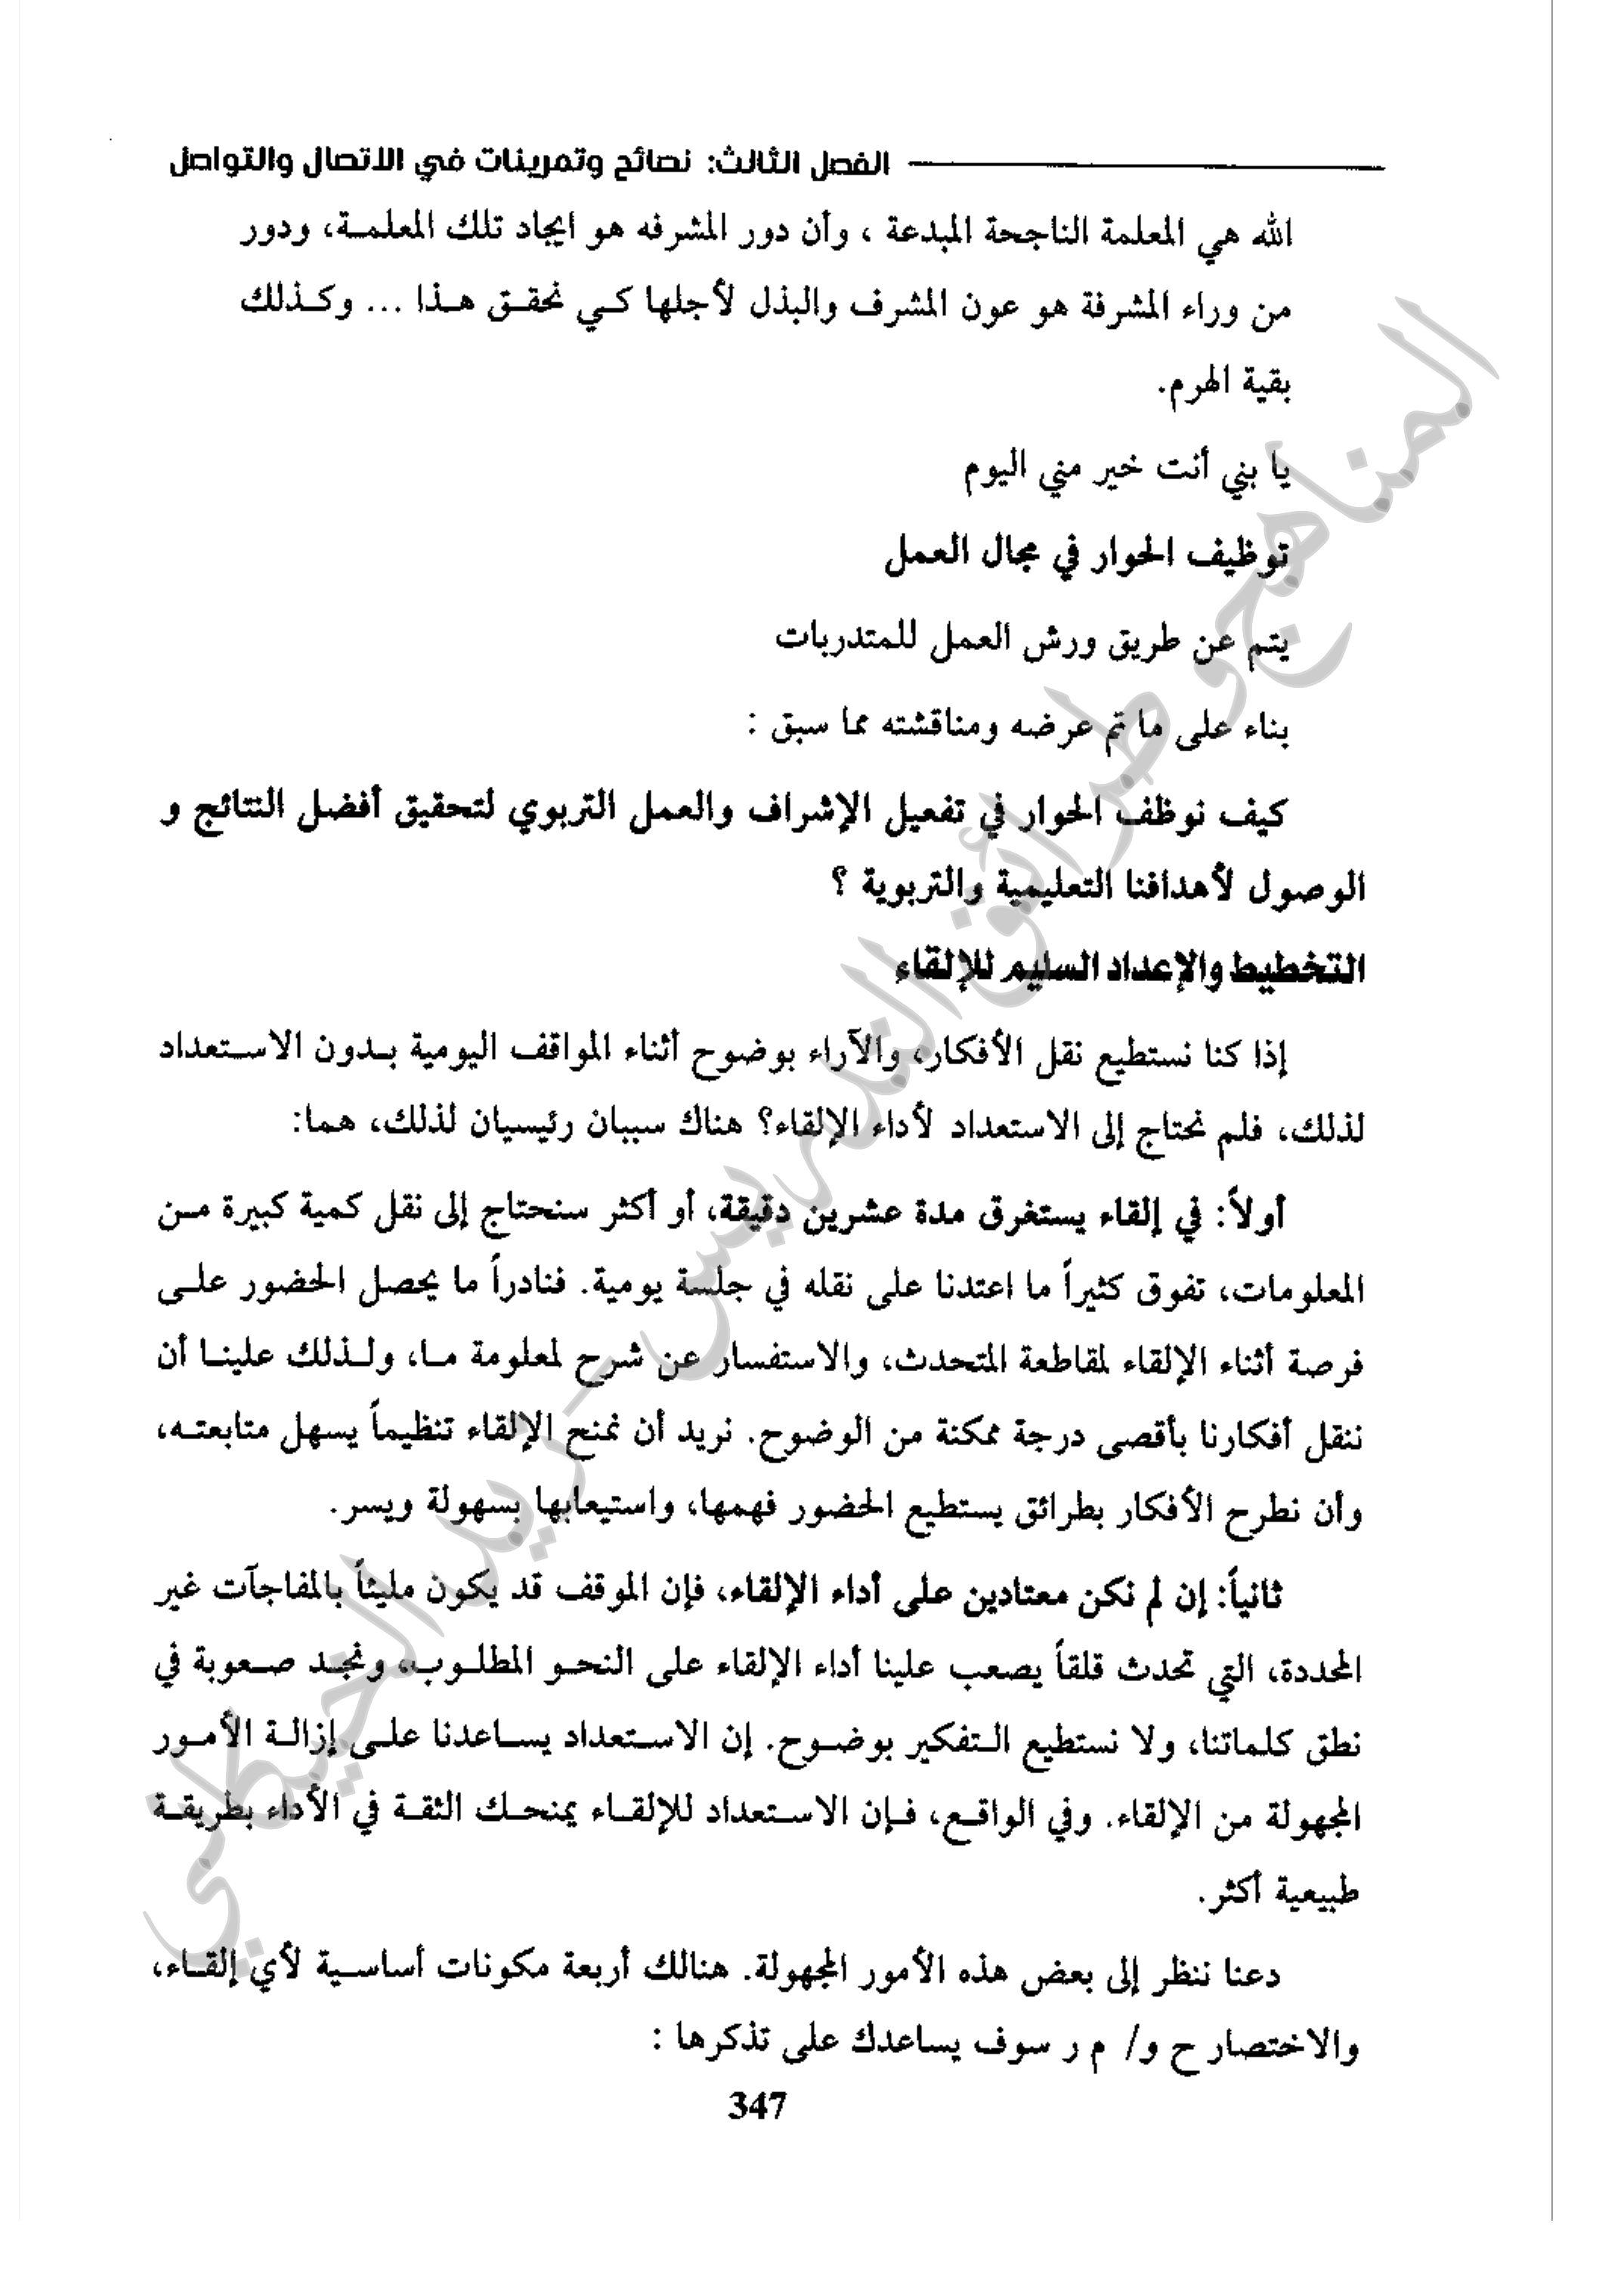 الفصل الثالث: نصائح وتمرينات في الاتصال والتواصل
الله هي المعلمة الناجحة المبدعة ، وأن دور المشرفه هو ايجاد تلك المعلمة، ودور
من وراء المشرفة هو عون المشرف والبذل لأجلها كي نحقق هذا ... وكذلك
بقية الهرم.
يا بني أنت خير مني اليوم
توظيف الحوار في مجال العمل
يتم عن طريق ورش العمل للمتدربات
بناء على ما تم عرضه ومناقشته مما سبق :
كيف نوظف الحوار في تفعيل الإشراف والعمل التربوي لتحقيق أفضل النتائج و
الوصول لأهدافنا التعليمية والتربوية ؟
التخطيط والإعداد السليم للإلقاء
إذا كنا نستطيع نقل الأفكار، والآراء بوضوح أثناء المواقف اليومية بدون الاستعداد
لذلك، فلم نحتاج إلى الاستعداد لأداء الإلقاء؟ هناك سببان رئيسيان لذلك، هما:
أولاً: في إلقاء يستغرق مدة عشرين دقيقة، أو أكثر سنحتاج إلى نقل كمية كبيرة من
المعلومات، تفوق كثيراً ما اعتدنا على نقله في جلسة يومية. فنادراً ما يحصل الحضور على
فرصة أثناء الإلقاء لمقاطعة المتحدث، والاستفسار عن شرح لمعلومة ما، ولذلك علينا أن
ننقل أفكارنا بأقصى درجة ممكنة من الوضوح. نريد أن نمنح الإلقاء تنظيماً يسهل متابعته،
وأن نطرح الأفكار بطرائق يستطيع الحضور فهمها، واستيعابها بسهولة ويسر.
ثانياً: إن لم نكن معتادين على أداء الإلقاء، فإن الموقف قد يكون مليئاً بالمفاجآت غير
المحددة، التي تحدث قلقاً يصعب علينا أداء الإلقاء على النحو المطلوب، ونجد صعوبة في
نطق كلماتنا، ولا نستطيع التفكير بوضوح. إن الاستعداد يساعدنا على إزالة الأمور
المجهولة من الإلقاء. وفي الواقع، فإن الاستعداد للإلقاء يمنحك الثقة في الأداء بطريقة
طبيعية أكثر.
دعنا ننظر إلى بعض هذه الأمور المجهولة. هنالك أربعة مكونات أساسية لأي إلقاء،
والاختصار ح و/ م ر سوف يساعدك على تذكرها :
347
المناهج وطرائق التدريس - ريد الخيكاني